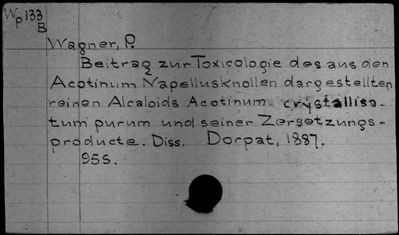 Wp133
B
Wagner, P.
Beitrag zur Toxicologie des aus den
Acotinum Napellusknollen dargestellten
reinen Alcaloids Acotinum crystallisa-
tum purum und seiner Zersetzungs-
producte. Diss. Dorpat, 1887.
95S.